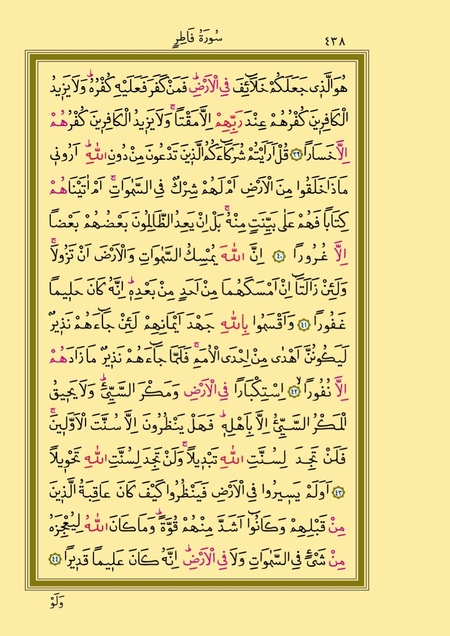 سُورَةُ فَاطِرٍ ٤٣٨
هُوَ الَّذ۪ي جَعَلَكُمْ خَلَٓائِفَ فِي الْاَرْضِۜ فَمَنْ كَفَرَ فَعَلَيْهِ كُفْرُهُۜ وَلَا يَز۪يدُ
الْكَافِر۪ينَ كُفْرُهُمْ عِنْدَ رَبِّهِمْ اِلَّا مَقْتًاۚ وَلَا يَز۪يدُ الْكَافِر۪ينَ كُفْرُهُمْ
اِلَّا خَسَارًا ﴿٣٩﴾ قُلْ اَرَاَيْتُمْ شُرَكَٓاءَكُمُ الَّذ۪ينَ تَدْعُونَ مِنْ دُونِ اللّٰهِۜ اَرُون۪ي
مَاذَا خَلَقُوا مِنَ الْاَرْضِ اَمْ لَهُمْ شِرْكٌ فِي السَّمٰوَاتِۚ اَمْ اٰتَيْنَاهُمْ
كِتَابًا فَهُمْ عَلٰى بَيِّنَتٍ مِنْهُۚ بَلْ اِنْ يَعِدُ الظَّالِمُونَ بَعْضُهُمْ بَعْضًا
اِلَّا غُرُورًا ﴿٤٠﴾ اِنَّ اللّٰهَ يُمْسِكُ السَّمٰوَاتِ وَالْاَرْضَ اَنْ تَزُولَاۚ
وَلَئِنْ زَالَتَٓا اِنْ اَمْسَكَهُمَا مِنْ اَحَدٍ مِنْ بَعْدِه۪ۜ اِنَّهُ كَانَ حَل۪يمًا
غَفُورًا ﴿٤١﴾ وَاَقْسَمُوا بِاللّٰهِ جَهْدَ اَيْمَانِهِمْ لَئِنْ جَٓاءَهُمْ نَذ۪يرٌ
لَيَكُونُنَّ اَهْدٰى مِنْ اِحْدَى الْاُمَمِۚ فَلَمَّا جَٓاءَهُمْ نَذ۪يرٌ مَا زَادَهُمْ
اِلَّا نُفُورًاۙ ﴿٤٢﴾ اِسْتِكْبَارًا فِي الْاَرْضِ وَمَكْرَ السَّيِّئِۜ وَلَا يَح۪يقُ
الْمَكْرُ السَّيِّئُ اِلَّا بِاَهْلِه۪ۜ فَهَلْ يَنْظُرُونَ اِلَّا سُنَّتَ الْاَوَّل۪ينَۚ
فَلَنْ تَجِدَ لِسُنَّتِ اللّٰهِ تَبْد۪يلًاۚ وَلَنْ تَجِدَ لِسُنَّتِ اللّٰهِ تَحْو۪يلًا
﴿٤٣﴾ اَوَلَمْ يَس۪يرُوا فِي الْاَرْضِ فَيَنْظُرُوا كَيْفَ كَانَ عَاقِبَةُ الَّذ۪ينَ
مِنْ قَبْلِهِمْ وَكَانُٓوا اَشَدَّ مِنْهُمْ قُوَّةًۜ وَمَا كَانَ اللّٰهُ لِيُعْجِزَهُ
مِنْ شَيْءٍ فِي السَّمٰوَاتِ وَلَا فِي الْاَرْضِۜ اِنَّهُ كَانَ عَل۪يمًا قَد۪يرًا ﴿٤٤﴾
وَلَوْ